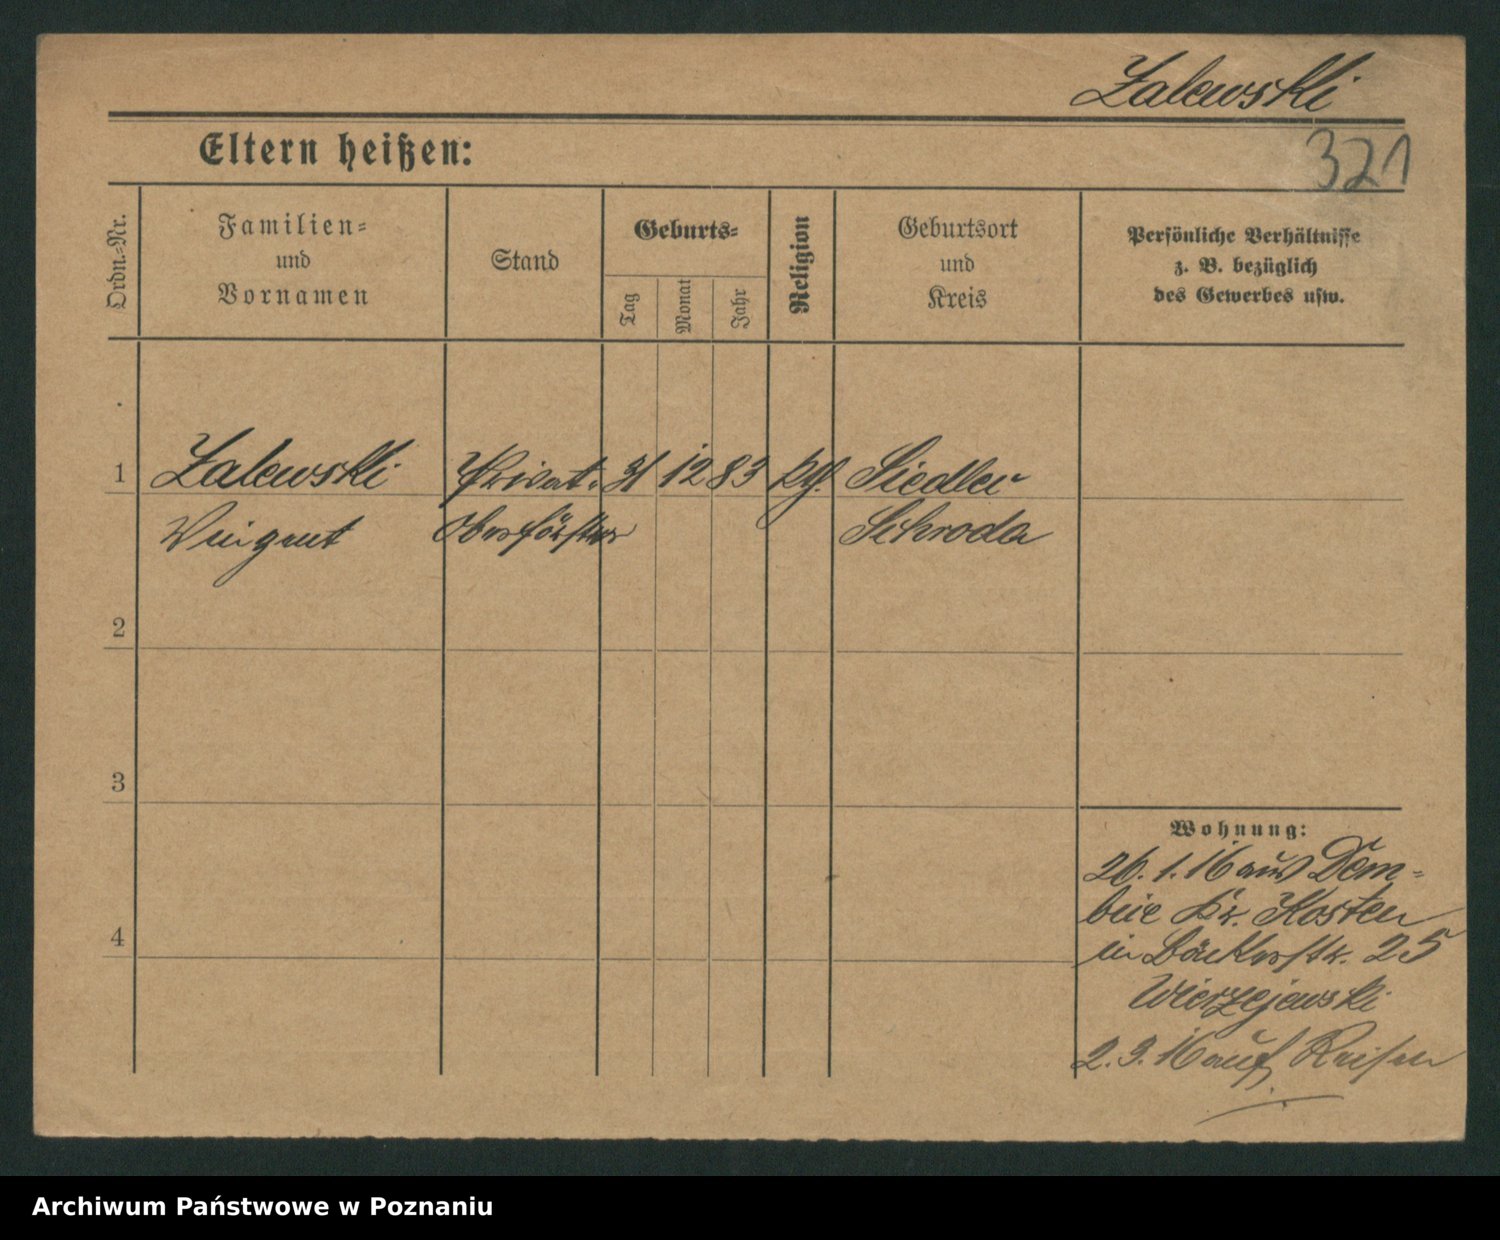 Zalewski
Eltern heißen:
321
Ordn.-Nr.
Familien-
und
Vornamen
Stand
Geburts-
Tag
Monat
Jahr
Religion
Geburtsort
und
Kreis
Persönliche Verhältnisse
z. B. bezüglich
des Gewerbes usw.
1
Zalewski
Privat-
31
12
83
Siedlec
Vinzent
Oberförster
Schroda
2
3
4
Wohnung:
26. 1. 16 aus Dem-
biec Kr. Kosten
in Bäckerstr. 25
Wierzejewski
2. 3. 16 auf Reisen
Archiwum Państwowe w Poznaniu